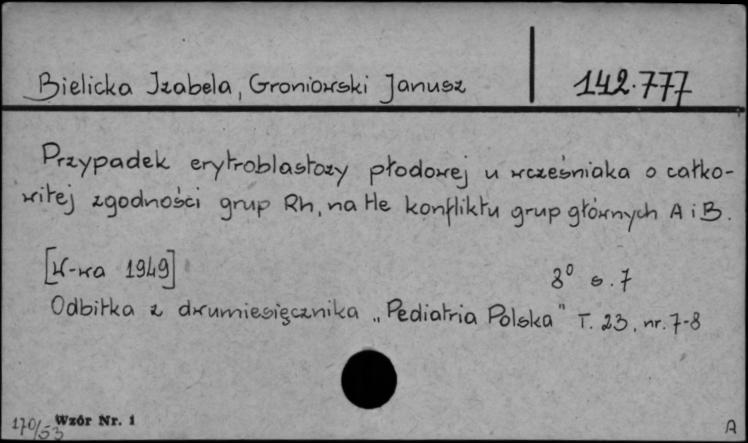 Bielicka Izabela, Groniowski Janusz
142.777
Przypadek erytroblastozy płodowej u wcześniaka o całko-
witej zgodności grup Rh, na tle konfliktu grup głównych A i B.
[W-wa 1949]
8° s. 7
Odbitka z dwumiesięcznika „Pediatria Polska" T. 23, nr. 7-8
170/53
Wzór Nr. 1
A